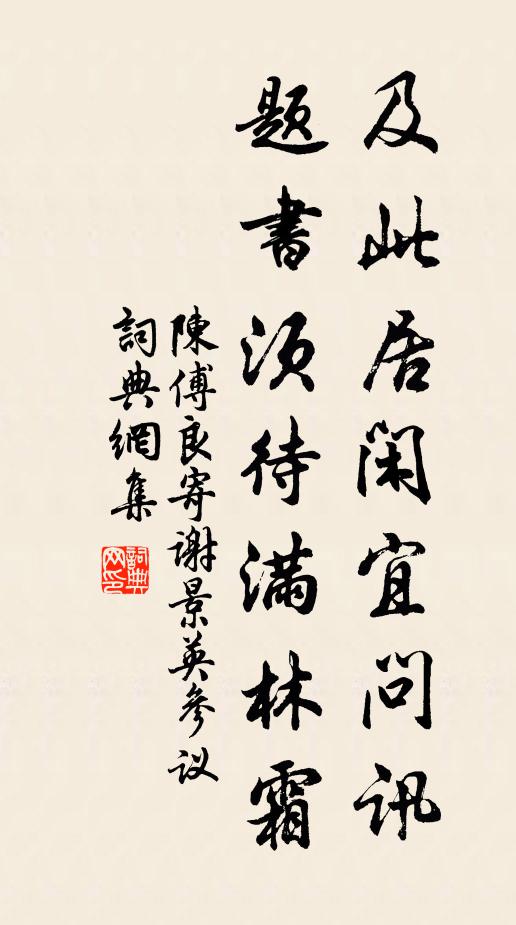 及此居閑宜問訊
題書须待满林霜
陳傅良寄謝景英參议
詞典網集
詞典网印